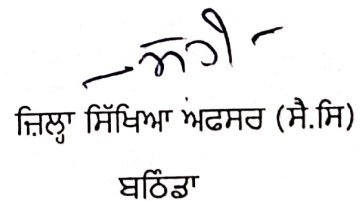 -ਸਹੀ-
ਜ਼ਿਲ੍ਹਾ ਸਿੱਖਿਆ ਅਫਸਰ (ਸੈ.ਸਿ)
ਬਠਿੰਡਾ